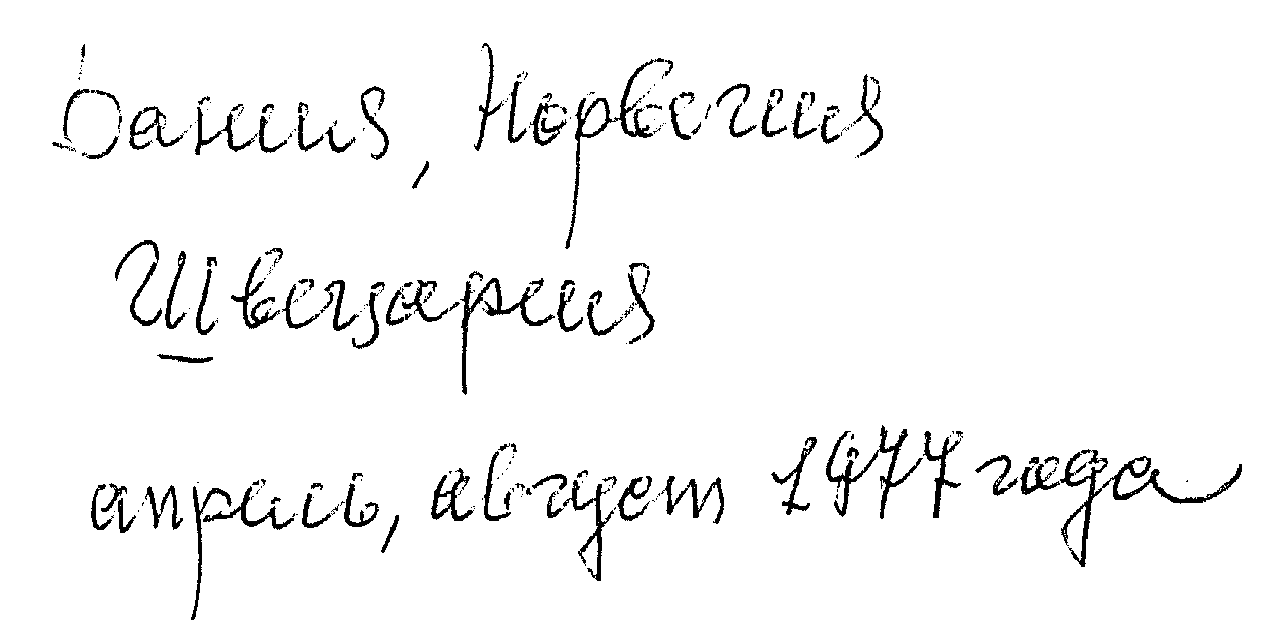 Дания, Норвегия
Швецария
апрель, август 1977 года